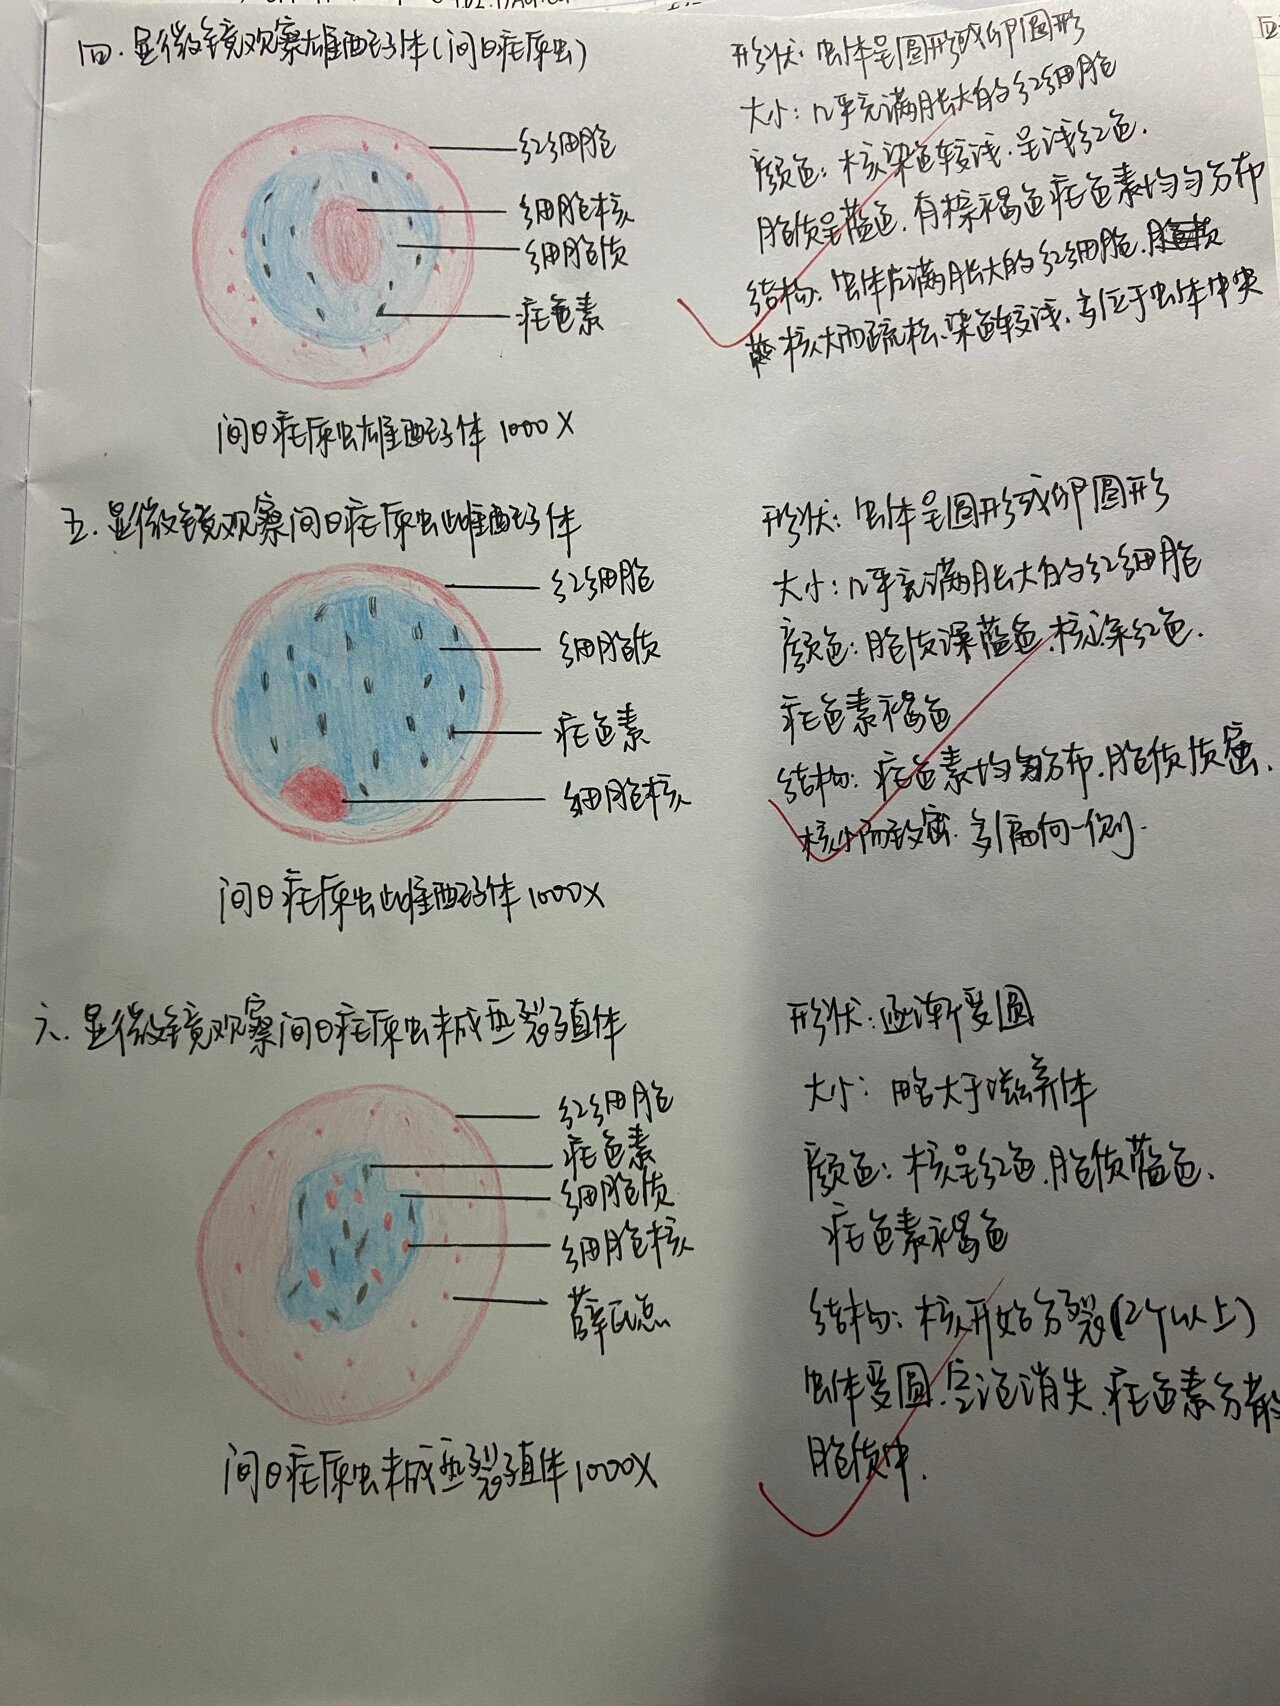 四.显微镜观察雄配子体(间日疟原虫)
红细胞
细胞核
细胞质
疟色素
间日疟原虫雄配子体 1000X
形状:虫体呈圆形或卵圆形
大小:几乎充满胀大的红细胞
颜色:核染色较浅.呈浅红色.
胞质呈蓝色.有棕褐色疟色素均匀分布
结构:虫体占满胀大的红细胞.
核大而疏松.染色较浅.多位于虫体中央
五.显微镜观察间日疟原虫雌配子体
红细胞
细胞质
疟色素
细胞核
间日疟原虫雌配子体 1000X
形状:虫体呈圆形或卵圆形
大小:几乎充满胀大的红细胞
颜色:胞质深蓝色.核深红色.
疟色素褐色
结构:疟色素均匀分布.胞质质密.
核小而致密.多偏向一侧.
六.显微镜观察间日疟原虫未成熟裂殖体
红细胞
疟色素
细胞质
细胞核
薛氏点
间日疟原虫未成熟裂殖体 1000X
形状:逐渐变圆
大小:略大于滋养体
颜色:核呈红色.胞质蓝色.
疟色素褐色
结构:核开始分裂(2个以上)
虫体变圆.空泡消失.疟色素分散
胞质中.